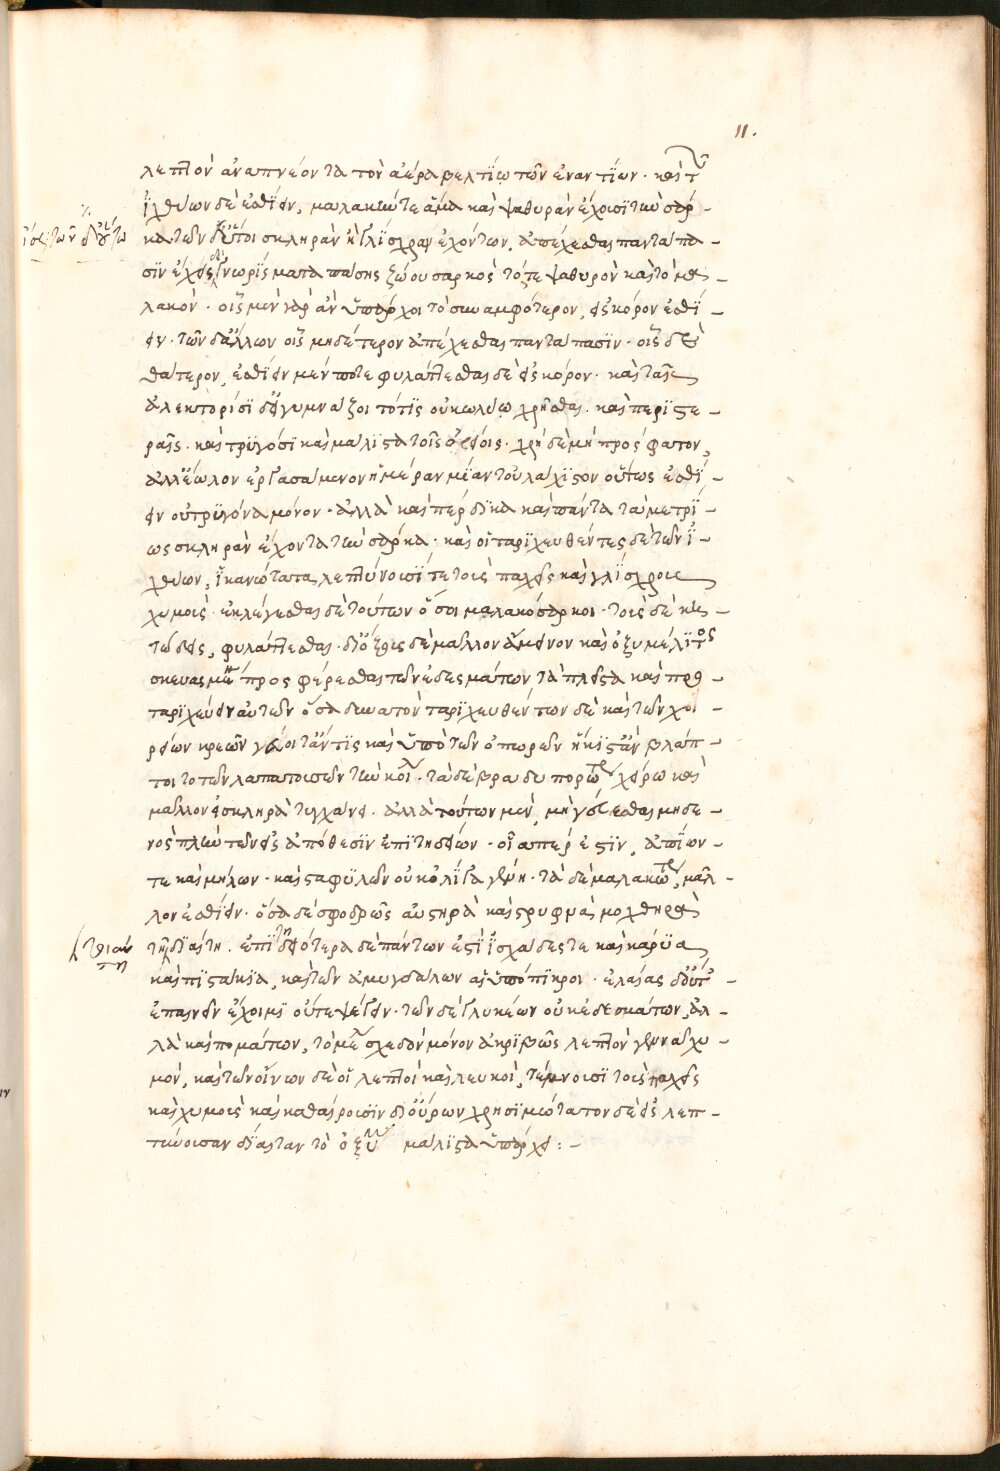 11.
λεπτὸν ἀναπνέοντα τὸν ἀέρα βελτίω τῶν ἐναντίων· καὶ τῶν
ἰχθύων δὲ ἐσθίειν, μαλακήν τε ἅμα καὶ ψαθυρὰν ἔχουσι τὴν σάρ-
κα τῶν δ' ἤτοι σκληρὰν ἢ γλίσχραν ἐχόντων, ἀπέχεσθαι παντάπα-
σιν ἔχει γνωρίσματα πάσης ζώου σαρκὸς τό τε ψαθυρὸν καὶ τὸ μα-
λακόν· οἷς μὲν γὰρ ἂν ὑπάρχοι τὸ συναμφότερον, εἰς κόρον ἐσθί-
ειν· τῶν δ' ἄλλων οἷς μηδέτερον ἀπέχεσθαι παντάπασιν· οἷς δὲ
θάτερον, ἐσθίειν μέν ποτε φυλάττεσθαι δὲ εἰς κόρον· καὶ ταῖς
ἀλεκτορίσι δ' εἰ γυμνάζοιτό τις οὐ κωλύω χρῆσθαι· καὶ περιστε-
ραῖς· καὶ τρυγόσι καὶ μάλιστα τοῖς ὀρείοις· χρὴ δὲ μὴ πρόσφατον,
ἀλλ' ἕωλον ἐργασάμενον ἡμέραν μίαν τοὐλάχιστον οὕτως ἐσθί-
ειν οὐ τρυγόνα μόνον· ἀλλὰ καὶ πέρδικα καὶ πάντα τὰ μετρί-
ως σκληρὰν ἔχοντα τὴν σάρκα· καὶ οἱ ταριχευθέντες δὲ τῶν ἰ-
χθύων, ἱκανώτατα λεπτύνουσί τε τοὺς παχεῖς καὶ γλίσχρους
χυμούς· ἐκλέγεσθαι δὲ τούτων ὅσοι μαλακόσαρκοι· τοὺς δὲ κη-
τώδεις, φυλάττεσθαι· δι' ὄξους δὲ μᾶλλον ἄμεινον καὶ ὀξυμέλιτος
σκευασμένη προσφέρεσθαι τῶν ἐδεσμάτων τὰ πλεῖστα καὶ προ-
ταριχεύειν αὐτῶν ὅσα δυνατὸν ταριχευθέντων δὲ καὶ τῶν χοι-
ρείων κρεῶν γεύοιτ' ἄν τις καὶ ὑπὸ τῶν ὀπωρῶν ἥκιστ' ἂν βλάπ-
τοιτο τῶν λαπαττουσῶν τὴν κοι· τὰ δὲ βραδυπορώτερα χείρω καὶ
μᾶλλον εἰ σκληρὰ τυγχάνει· ἀλλὰ τούτων μὲν, μὴ γεύεσθαι μηδε-
νὸς πλὴν τῶν εἰς ἀπόθεσιν ἐπιτηδείων· οἷά περ ἐστὶν, ἀπίων-
τε καὶ μήλων· καὶ σταφυλῶν οὐκ ὀλίγα γένη· τὰ δὲ μαλακώτερα, μᾶλ-
λον ἐσθίειν· ὅσα δὲ σφοδρῶς αὐστηρὰ καὶ στρυφνὰ μοχθηρὰ
τῇ διαίτῃ. ἐπιτηδειότερα δὲ πάντων ἐστὶ ἰσχάδες τε καὶ κάρυα
καὶ πιστάκια, καὶ τῶν ἀμυγδάλων αἱ ὑπόπικροι· ἐλαίας δ' οὔτ'
ἐπαινεῖν ἔχοιμι οὔτε ψέγειν· τῶν δὲ γλυκέων οὐκ ἐδεσμάτων, ἀλ-
λὰ καὶ πομάτων, τὸ μέλι σχεδὸν μόνον ἀκριβῶς λεπτὸν γεννᾷ χυ-
μόν, καὶ τῶν οἴνων δὲ οἱ λεπτοὶ καὶ λευκοὶ, τέμνουσι τοὺς παχεῖς
καὶ χυμοὺς καὶ καθαίρουσιν δι' οὔρων χρησιμώτατον δὲ εἰς λεπ-
τύνουσαν δίαιταν τὸ ὀξύμελι μάλιστα ὑπάρχει:-